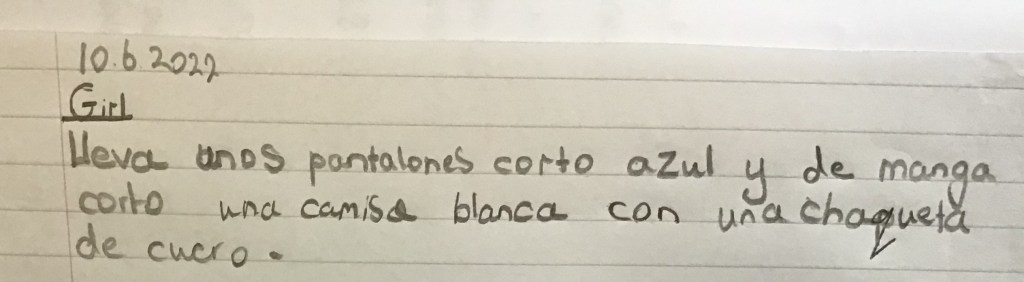 10.6.2022
Girl
lleva unos pantalones corto azul y de manga
corto una camisa blanca con una chaqueta
de cuero.